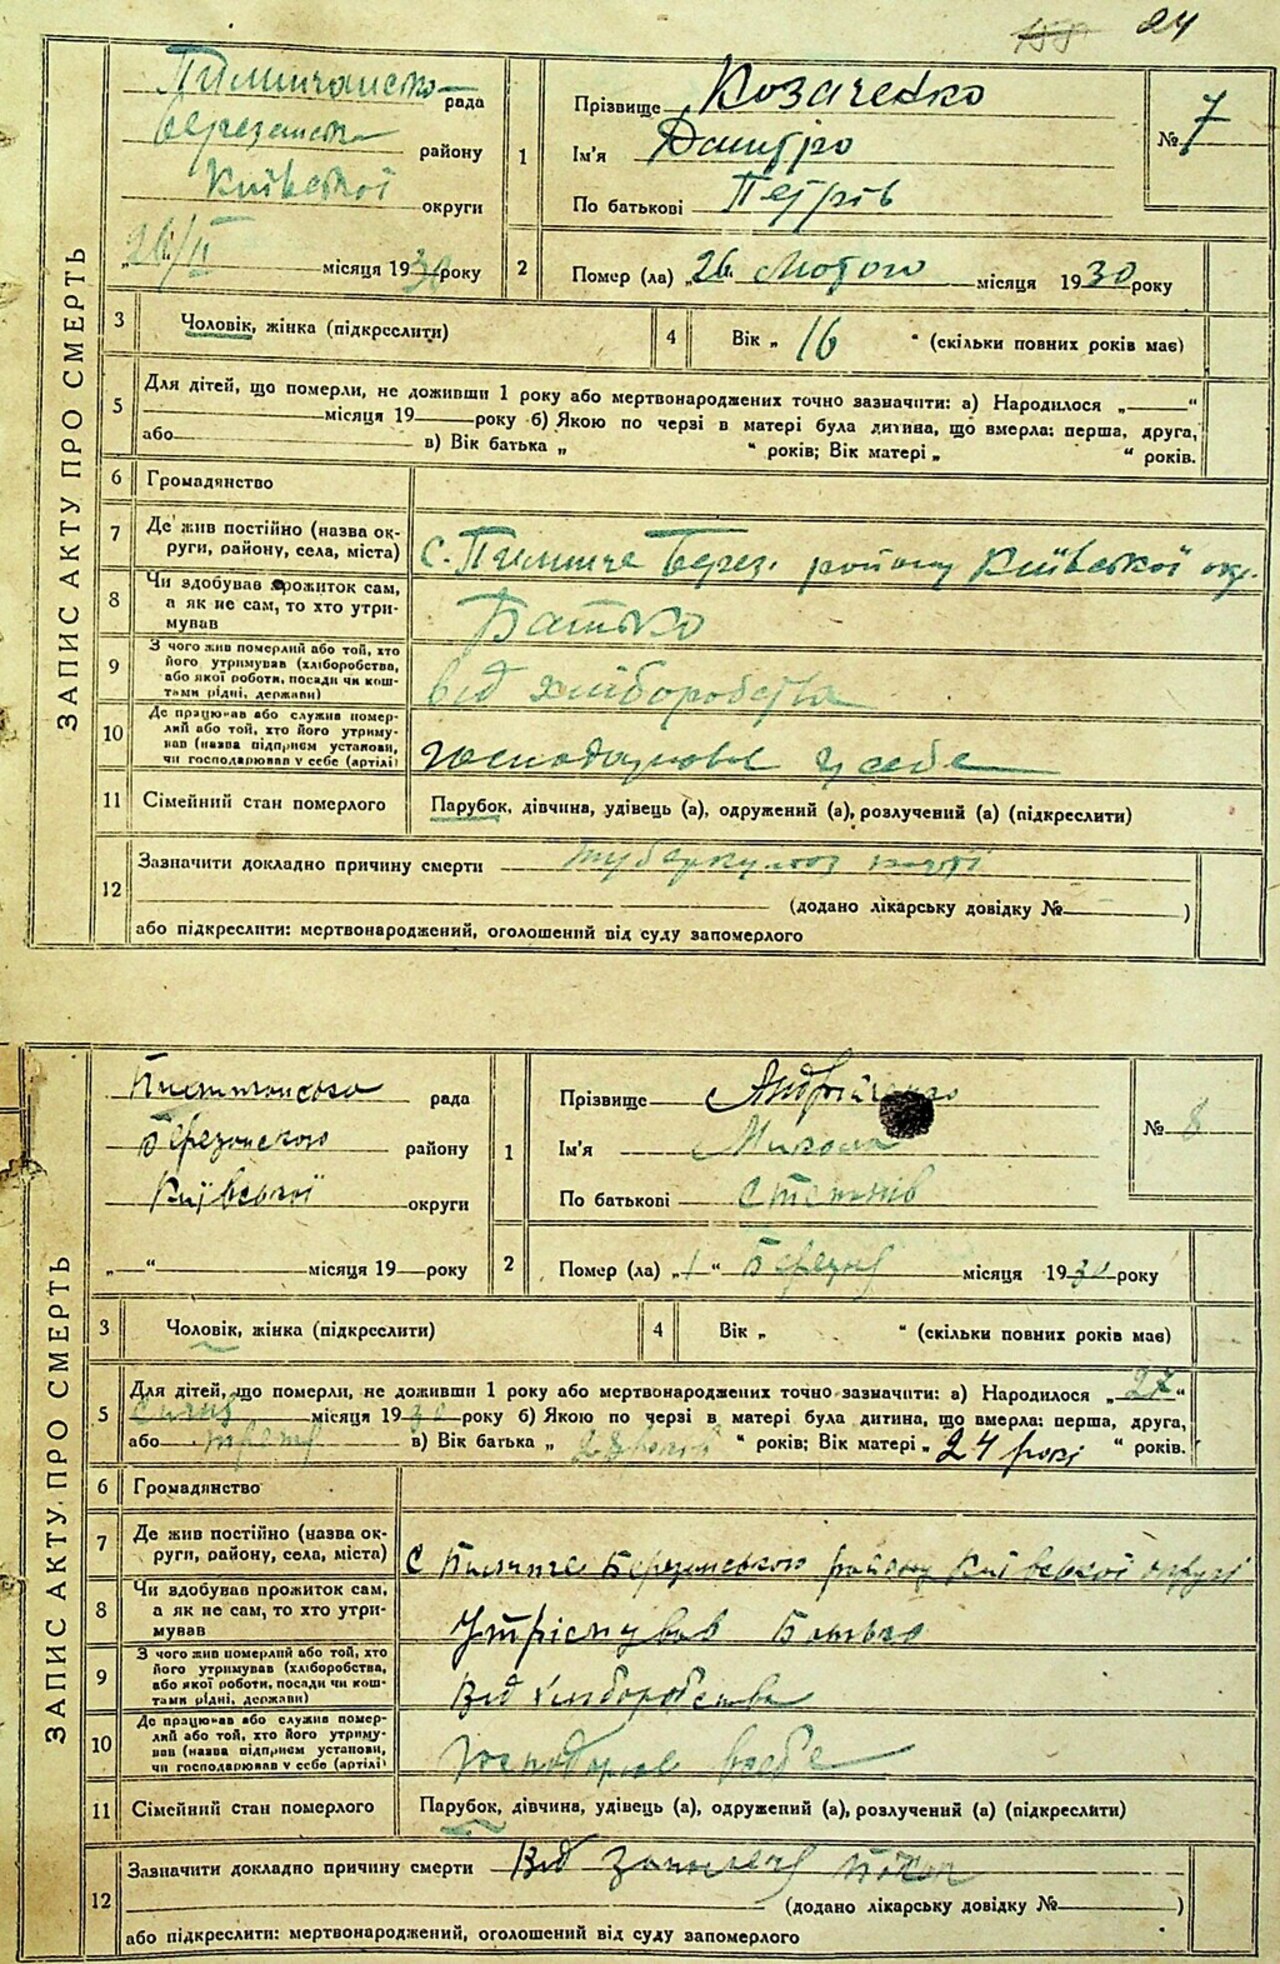 24
ЗАПИС АКТУ ПРО СМЕРТЬ
рада
району
Київської округи
„26/II місяця 1930 року
1 Прізвище Козаченко
Ім'я Дмитро
По батькові Петрів
№ 7
2 Помер (ла) „26 Лютого місяця 1930 року
3 Чоловік, жінка (підкреслити)
4 Вік „ 16 “ (скільки повних років має)
5 Для дітей, що померли, не доживши 1 року або мертвонароджених точно зазначити: а) Народилося „ “
місяця 19 року б) Якою по черзі в матері була дитина, що вмерла: перша, друга,
або в) Вік батька „ “ років; Вік матері „ “ років.
6 Громадянство
7 Де жив постійно (назва ок-
руги, району, села, міста) С. Пилипче Берез. району Київської окр.
8 Чи здобував прожиток сам,
а як не сам, то хто утри-
мував Батько
9 З чого жив померлий або той, хто
його утримував (хліборобства,
або якої роботи, посади чи кош-
тами рідні, держави) від хліборобства
10 Де працював або служив помер-
лий або той, хто його утриму-
вав (назва підприєм установи,
чи господарював у себе (артілі) у себе
11 Сімейний стан померлого Парубок, дівчина, удівець (а), одружений (а), розлучений (а) (підкреслити)
12 Зазначити докладно причину смерти туберкульоз
(додано лікарську довідку № )
або підкреслити: мертвонароджений, оголошений від суду запомерлого
ЗАПИС АКТУ ПРО СМЕРТЬ
рада
Березанського району
Київської округи
„ “ місяця 19 року
1 Прізвище Андрійченко
Ім'я Микола
По батькові Степанів
№ 8
2 Помер (ла) „1“ Березня місяця 1930 року
3 Чоловік, жінка (підкреслити)
4 Вік „ “ (скільки повних років має)
5 Для дітей, що померли, не доживши 1 року або мертвонароджених точно зазначити: а) Народилося „27“
Січня місяця 1930 року б) Якою по черзі в матері була дитина, що вмерла: перша, друга,
або третя в) Вік батька „ 28 років “ років; Вік матері „ 24 рокі “ років.
6 Громадянство
7 Де жив постійно (назва ок-
руги, району, села, міста) С Пилипче Березанського району Київської округі
8 Чи здобував прожиток сам,
а як не сам, то хто утри-
мував Утрімував Батько
9 З чого жив померлий або той, хто
його утримував (хліборобства,
або якої роботи, посади чи кош-
тами рідні, держави) Від хліборобства
10 Де працював або служив помер-
лий або той, хто його утриму-
вав (назва підприєм установи,
чи господарював у себе (артілі) всебе
11 Сімейний стан померлого Парубок, дівчина, удівець (а), одружений (а), розлучений (а) (підкреслити)
12 Зазначити докладно причину смерти Від запаленя
(додано лікарську довідку № )
або підкреслити: мертвонароджений, оголошений від суду запомерлого